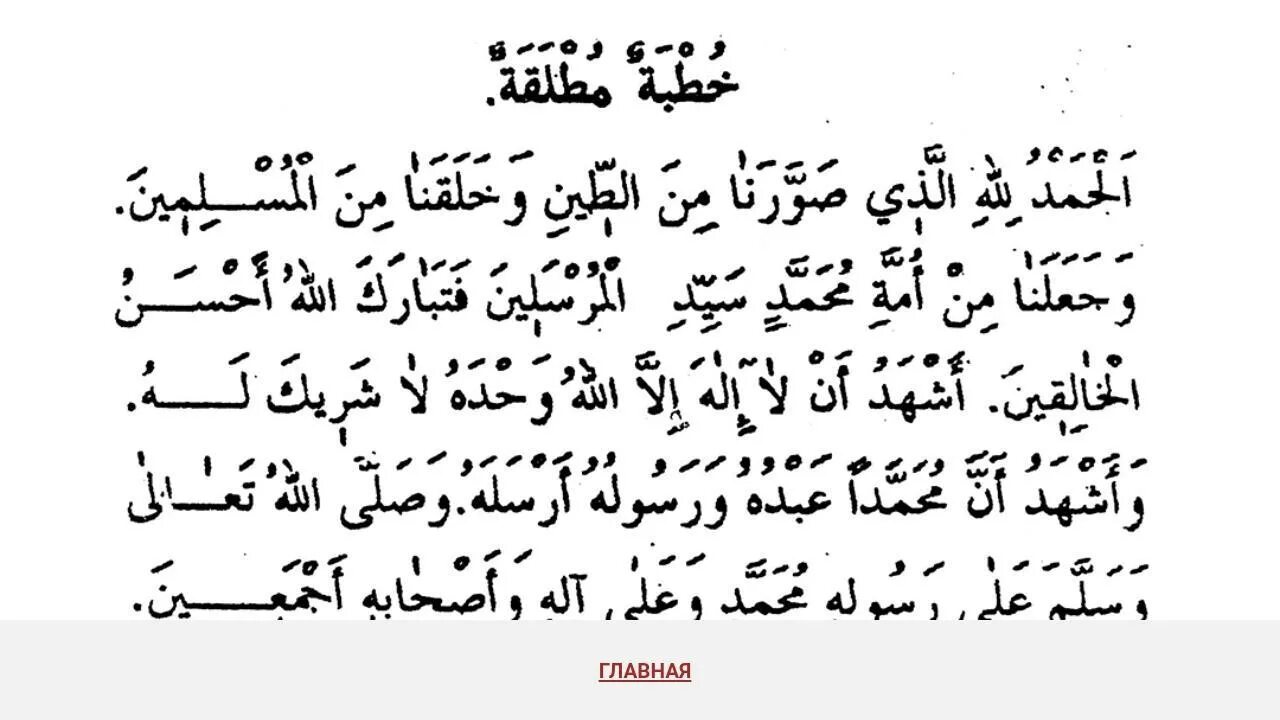 خُطْبَةٌ مُطْلَقَةٌ.
اَلْحَمْدُ لِلّٰهِ الَّذِي صَوَّرَنَا مِنَ الطِّينِ وَخَلَقَنَا مِنَ الْمُسْلِمِينَ.
وَجَعَلَنَا مِنْ أُمَّةِ مُحَمَّدٍ سَيِّدِ الْمُرْسَلِينَ فَتَبَارَكَ اللهُ أَحْسَنُ
الْخَالِقِينَ. أَشْهَدُ أَنْ لَا إِلٰهَ إِلَّا اللهُ وَحْدَهُ لَا شَرِيكَ لَهُ.
وَأَشْهَدُ أَنَّ مُحَمَّداً عَبْدُهُ وَرَسُولُهُ أَرْسَلَهُ. وَصَلَّى اللهُ تَعَالٰى
وَسَلَّمَ عَلٰى رَسُولِهِ مُحَمَّدٍ وَعَلٰى آلِهِ وَأَصْحَابِهِ أَجْمَعِينَ.
ГЛАВНАЯ